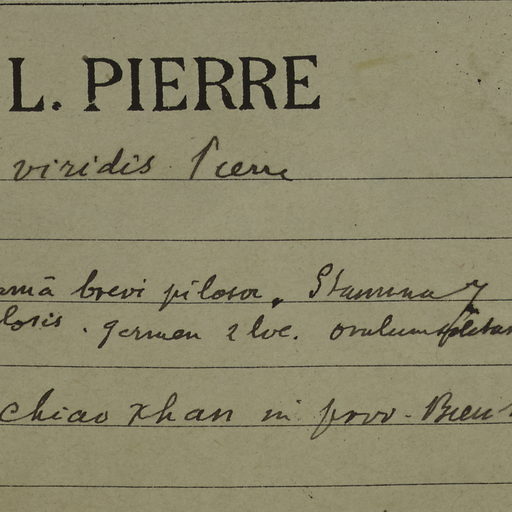 L. PIERRE
viridis Pierre
brevi pilosa, Stamina 7
germen 2 loc.
Chiao Xhan in prov. Bien